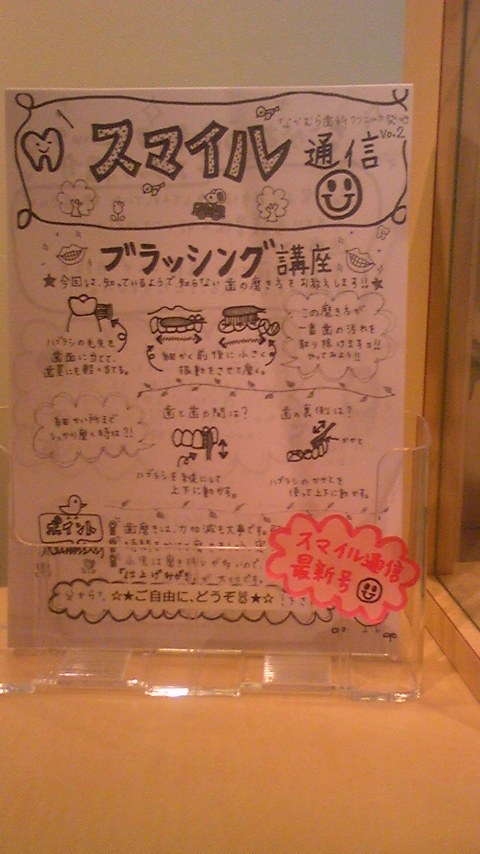 なかむら歯科クリニック発行
Vo.2
スマイル通信
ブラッシング講座
★今回は、知っているようで知らない歯の磨き方をお教えします!!★
ハブラシの毛先を
歯面に当て、
歯茎にも軽く当てる。
細かく前後に小さく
振動をさせて磨く。
この磨き方が
一番歯の汚れを
取り除けます!!
やってみよう!!
細かい所まで
しっかり磨く時は?!
歯と歯の間は?
ハブラシを縦にして
上下に動かす。
歯の裏側は?
かかと
ハブラシのかかとを
使って上下に動かす。
ポイント
歯磨きは、力加減も大事です。
スマイル通信
最新号
☆★ご自由に、どうぞ★☆